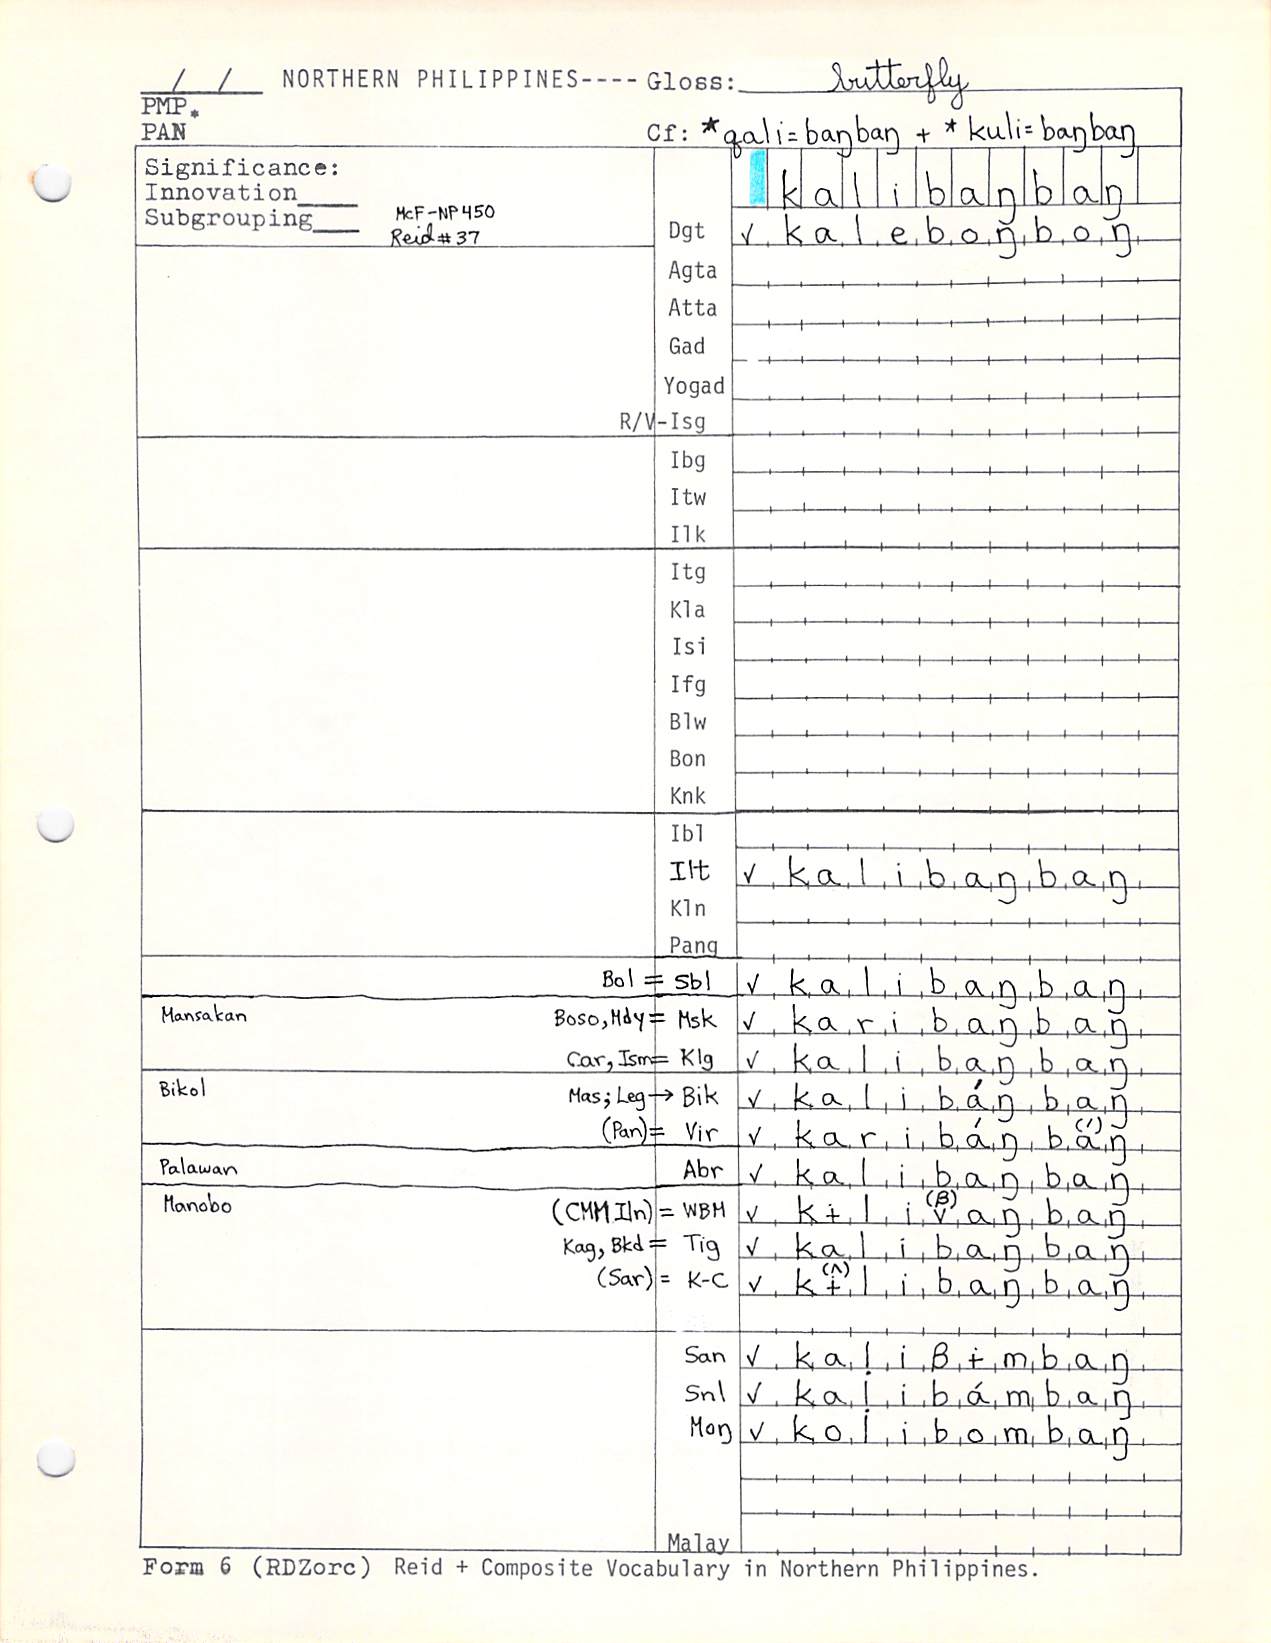 / / NORTHERN PHILIPPINES---- Gloss: butterfly
PMP*
PAN Cf: *qali=baŋbaŋ + *kuli=baŋbaŋ
Significance:
Innovation____ kalibaŋbaŋ
Subgrouping____ McF-NP450
Reid#37
Dgt ✓ kaleboŋboŋ
Agta
Atta
Gad
Yogad
R/V-Isg
Ibg
Itw
Ilk
Itg
Kla
Isi
Ifg
Blw
Bon
Knk
Ibl
Ilt ✓ kalibaŋbaŋ
Kln
Pang
Bol = Sbl ✓ kalibaŋbaŋ
Mansakan Boso, Mdy = Msk ✓ karibaŋbaŋ
Car, Ism = Klg ✓ kalibaŋbaŋ
Bikol Mas; Leg → Bik ✓ kalibáŋbaŋ
(Pan) = Vir ✓ karibáŋba(´)ŋ
Palawan Abr ✓ kalibaŋbaŋ
Manobo (CMM Iln) = WBM ✓ kɨliv(β)aŋbaŋ
Kag, Bkd = Tig ✓ kalibaŋbaŋ
(Sar) = K-C ✓ kɨ(ʌ)libaŋbaŋ
San ✓ kaliβɨmbaŋ
Snl ✓ kaḷibámbaŋ
Moŋ ✓ kolibombaŋ
Malay
Form 6 (RDZorc) Reid + Composite Vocabulary in Northern Philippines.